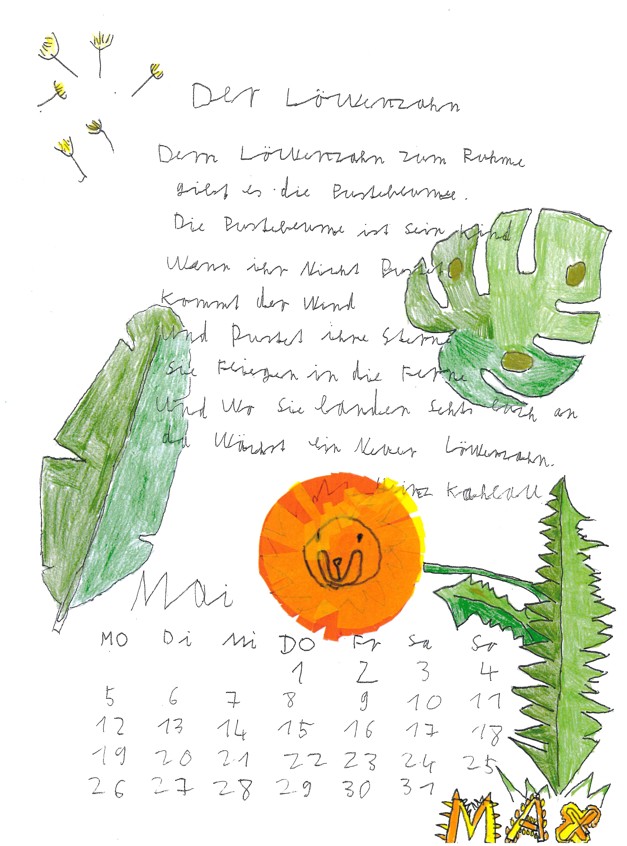 Der Löwenzahn
Dem Löwenzahn zum Ruhme
gibt es die Pusteblume.
Die Pusteblume ist sein Kind
Wann ihr Nicht Pustet
kommt der Wind
Und Pustet ihre Sterne
Sie Fliegen in die Ferne
Und Wo Sie landen Seht Euch an
da Wächst ein Neuer Löwenzahn.
Heinz Kahlau
Mai
MO Di Mi DO Fr Sa So
1 2 3 4
5 6 7 8 9 10 11
12 13 14 15 16 17 18
19 20 21 22 23 24 25
26 27 28 29 30 31
MAX